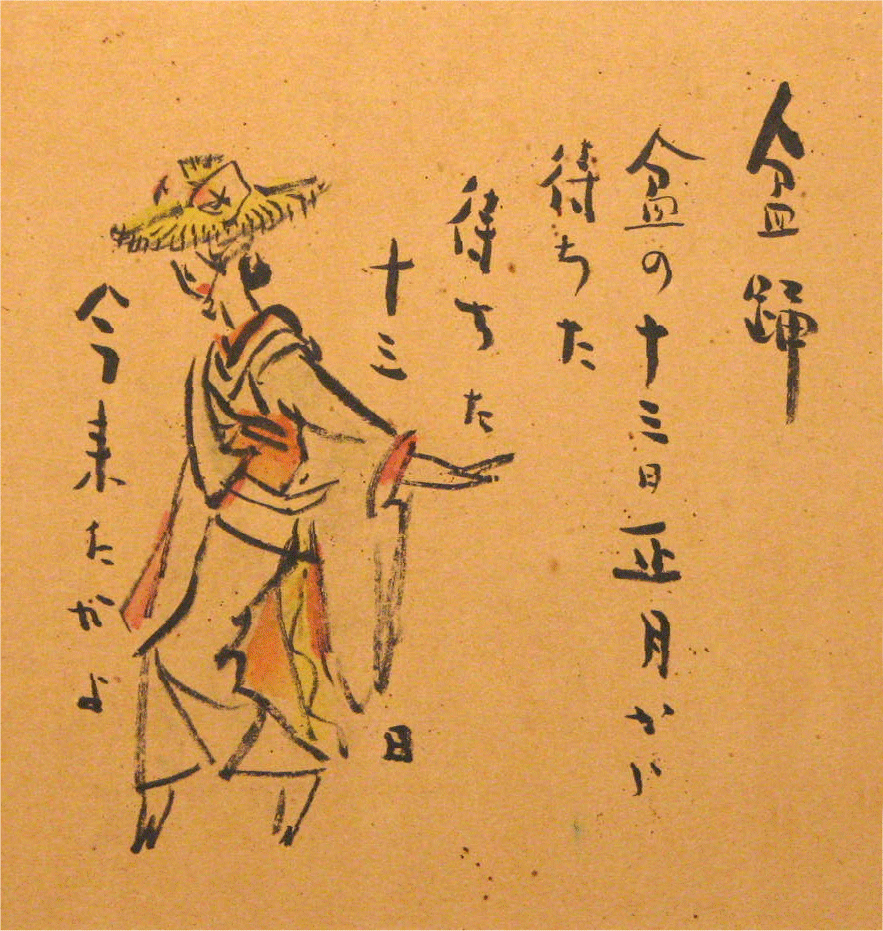 盆踊
盆の十三日正月から
待ちた
待ちた
十三日
今来たかよ